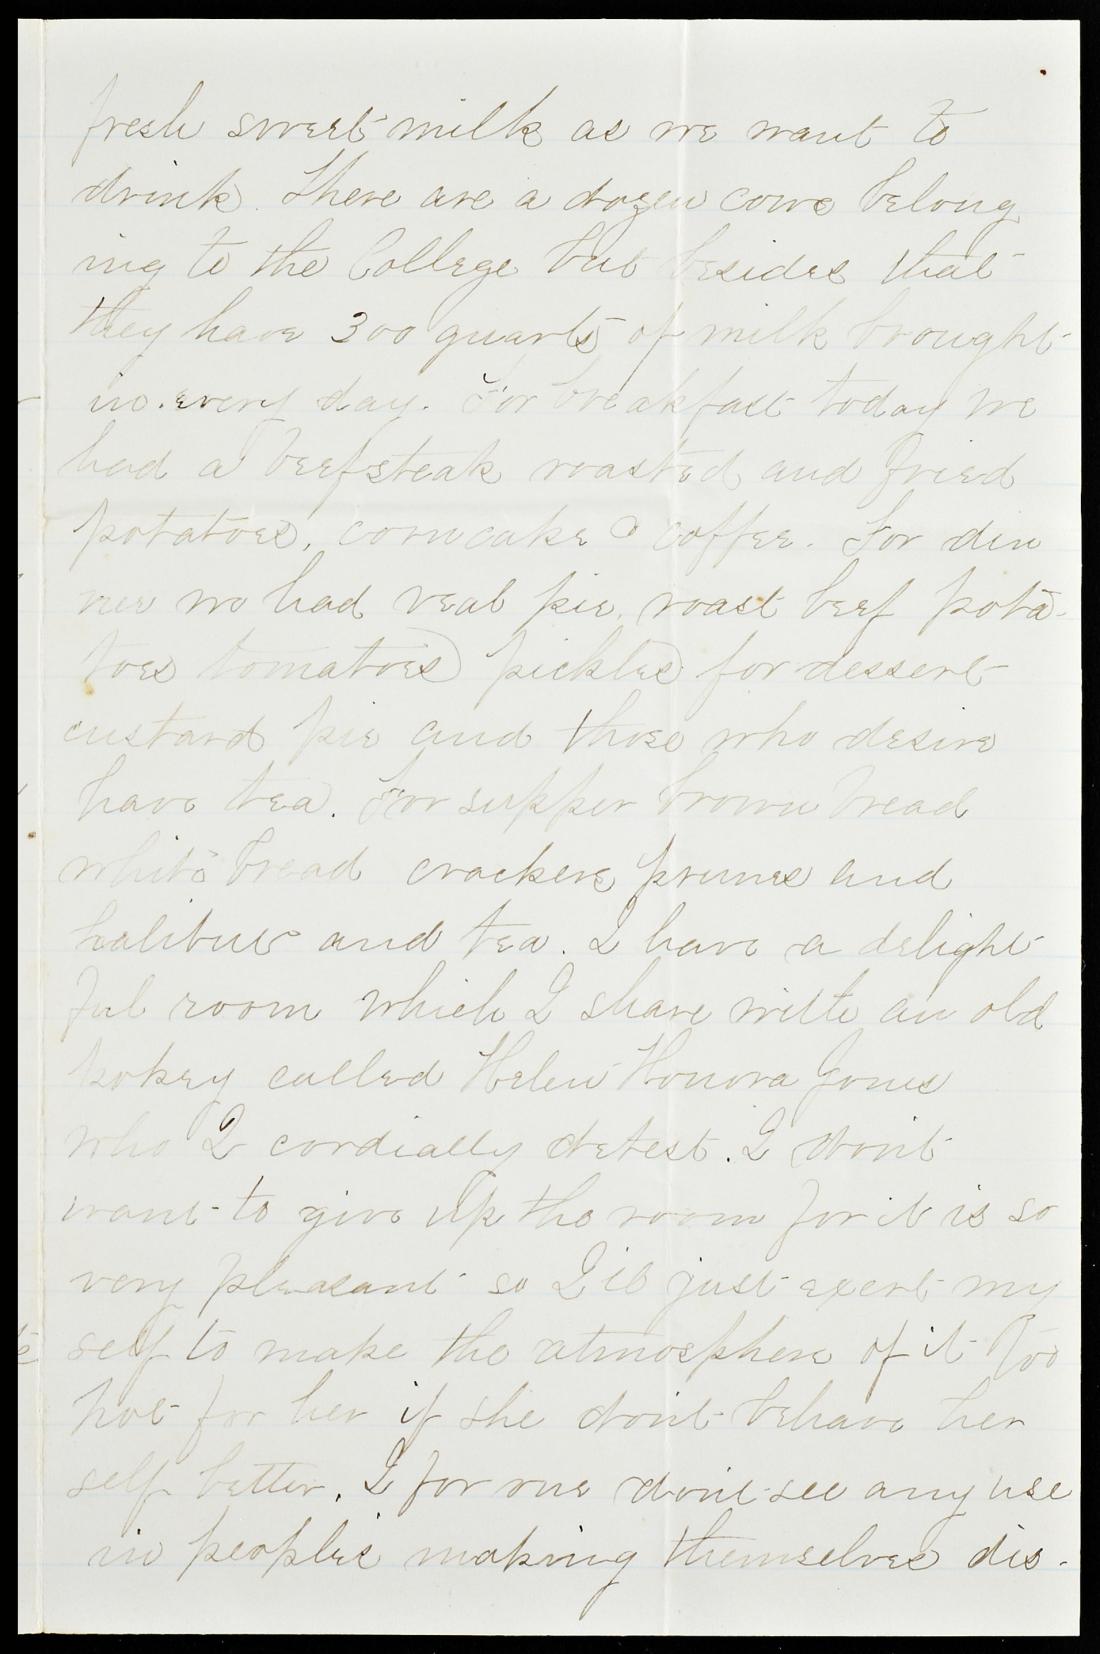 fresh sweet milk as we want to
drink. There are a dozen cows belong
ing to the College but besides that
they have 300 quarts of milk brought
in every day. For breakfast today we
had a beefsteak roasted and fried
potatoes, corncake & coffee. For din
ner we had veal pie, roast beef pota-
toes tomatoes pickles for dessert
custard pie and those who desire
have tea. For supper brown bread
white bread crackers prunes and
halibut and tea. I have a delight
ful room which I share with an old
pokey called Helen Honora Jones
who I cordially detest. I don't
want to give up the room for it is so
very pleasant so I'll just exert my
self to make the atmosphere of it too
hot for her if she don't behave her
self better. I for one don't see any use
in people's making themselves dis-